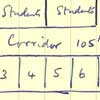 Students Students
Corridor 105'
3 4 5 6